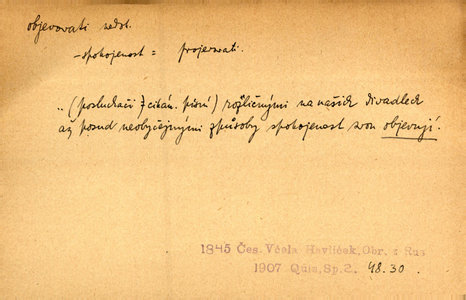 objevovati nedok.
-spokojenost = projevovati.
„(posluchači z cikán. písní) rozličnými na našich divadlech
až posud neobyčejnými způsoby spokojenost svou objevují.
1845 Čes. Včela Havlíček, Obr. z Rus
1907 Quis, Sp. 2. 48.30.